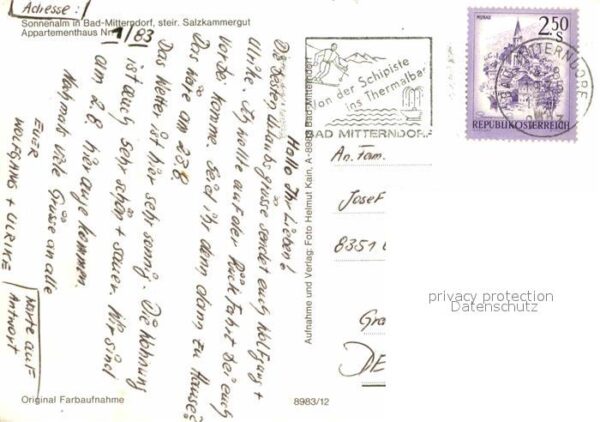 Adresse:
Sonnenalm in Bad-Mitterndorf, steir. Salzkammergut
Appartementhaus Nr. 1/83
Hallo Ihr Lieben!
Die besten Urlaubsgrüsse sendet euch Wolfgang +
Ulrike. Ich wollte auf der Rückfahrt bei euch
vorbei kommen. Seid ihr denn dann zu Hause?
Das wäre am 23.8.
Das Wetter ist hier sehr sonnig. Die Wohnung
ist auch sehr schön + sauber. Wir sind
am 2.8 hier angekommen.
Nochmals viele Grüsse an alle
EUER
WOLFGANG + ULRIKE
Warte auf
Antwort
Original Farbaufnahme
8983/12
Aufnahme und Verlag: Foto Helmut Kain, A-8983 Bad Mitterndorf
Von der Schipiste
ins Thermalbad
BAD MITTERNDORF
MURAU
2.50
S
REPUBLIK ÖSTERREICH
MITTERNDORF
An Fam.
Josef
8351
Gra
DE
privacy protection
Datenschutz